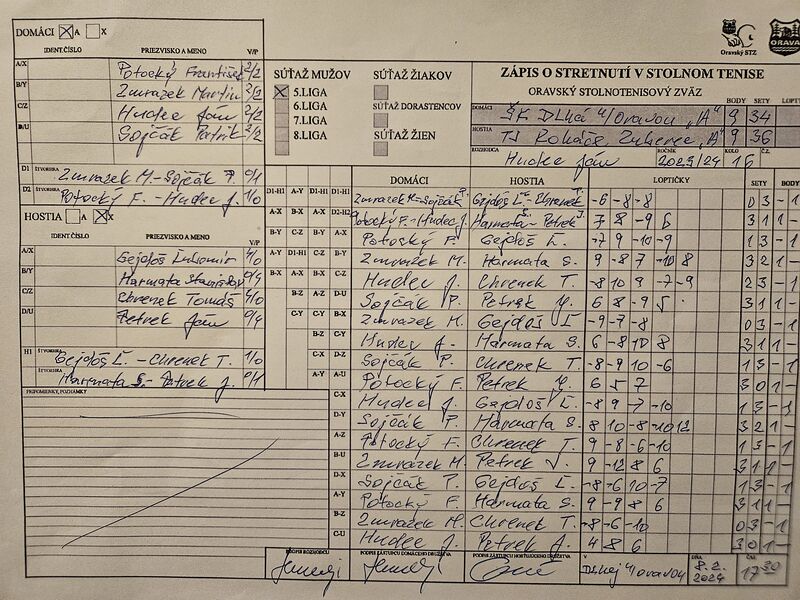 DOMÁCI A X
IDENT.ČÍSLO PRIEZVISKO A MENO V/P
A/X Potocký František 2/2
B/Y Zmrazek Martin 2/2
C/Z Hudec Ján 2/2
D/U Sojčák Patrik 2/2
D1 ŠTVORHRA Zmrazek M.-Sojčák P. 0/1
D2 ŠTVORHRA Potocký F.-Hudec J. 1/0
HOSTIA A X
IDENT.ČÍSLO PRIEZVISKO A MENO V/P
A/X Gejdoš Ľubomír 4/0
B/Y Harmata Stanislav 0/4
C/Z Chrenek Tomáš 4/0
D/U Petrek Ján 0/4
H1 ŠTVORHRA Gejdoš Ľ.-Chrenek T. 1/0
ŠTVORHRA Harmata S.-Petrek J. 0/1
PRIPOMIENKY, POZNÁMKY
SÚŤAŽ MUŽOV
5.LIGA
6.LIGA
7.LIGA
8.LIGA
SÚŤAŽ ŽIAKOV
SÚŤAŽ DORASTENCOV
SÚŤAŽ ŽIEN
Oravský STZ
ORAVA
ZÁPIS O STRETNUTÍ V STOLNOM TENISE
ORAVSKÝ STOLNOTENISOVÝ ZVÄZ
BODY SETY LOPT
DOMÁCI ŠK Dlhá n/Oravou "A" 9 34
HOSTIA TJ Roháče Zuberec "A" 9 36
ROZHODCA Hudec Ján ROČNÍK 2023/24 KOLO 16 Č.Z.
DOMÁCI HOSTIA LOPTIČKY SETY BODY
D1-H1 A-Y D1-H1 D1-H1 Zmrazek M-Sojčák P. Gejdoš Ľ.-Chrenek T. -6 -8 -8 0 3 - 1
A-X B-X A-X D2-H2 Potocký F.-Hudec J. Harmata-Petrek J. 7 8 -9 6 3 1 1 -
B-Y C-Z B-Y A-X Potocký F. Gejdoš Ľ. -7 9 -10 -9 1 3 - 1
A-Y D1-H1 C-Z B-Y Zmrazek M. Harmata S. 9 -8 7 -10 8 3 2 1 -
B-X A-X A-Y C-Z Hudec J. Chrenek T. -8 10 9 -7 -9 2 3 - 1
B-Z A-Z D-U Sojčák P. Petrek J. 6 8 -9 5 3 1 1 -
C-Y C-Y B-X Zmrazek M. Gejdoš Ľ -9 -7 -8 0 3 - 1
B-Z C-Y Hudec J. Harmata S. 6 -8 10 8 3 1 1 -
C-X D-Z Sojčák P. Chrenek T. -8 -9 10 -6 1 3 - 1
A-Y A-U Potocký F. Petrek J. 6 5 7 3 0 1 -
C-X Hudec J. Gejdoš Ľ. -8 9 -7 -10 1 3 - 1
D-Y Sojčák P. Harmata S. 8 10 -8 -10 12 3 2 1 -
A-Z Potocký F. Chrenek T. 9 -8 -6 -10 1 3 - 1
B-U Zmrazek M. Petrek J. 9 -12 8 6 3 1 1 -
D-X Sojčák P. Gejdoš Ľ. -8 -6 10 -7 1 3 - 1
A-Y Potocký F. Harmata S. 9 -9 8 6 3 1 1 -
B-Z Zmrazek M. Chrenek T. -8 -6 -10 0 3 - 1
C-U Hudec J. Petrek J. 4 8 6 3 0 1 -
PODPIS ROZHODCU PODPIS ZÁSTUPCU DOMÁCEHO DRUŽSTVA PODPIS ZÁSTUPCU HOSŤUJÚCEHO DRUŽSTVA V Dlhej n/Oravou DŇA 8.2. 2024 ČAS 17 30